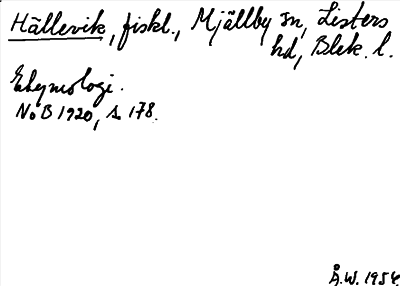 Hällevik, fiskl., Mjällby sn, Listers
hd, Blek. l.
Etymologi.
NoB 1920, s. 178.
Å.W. 1954.